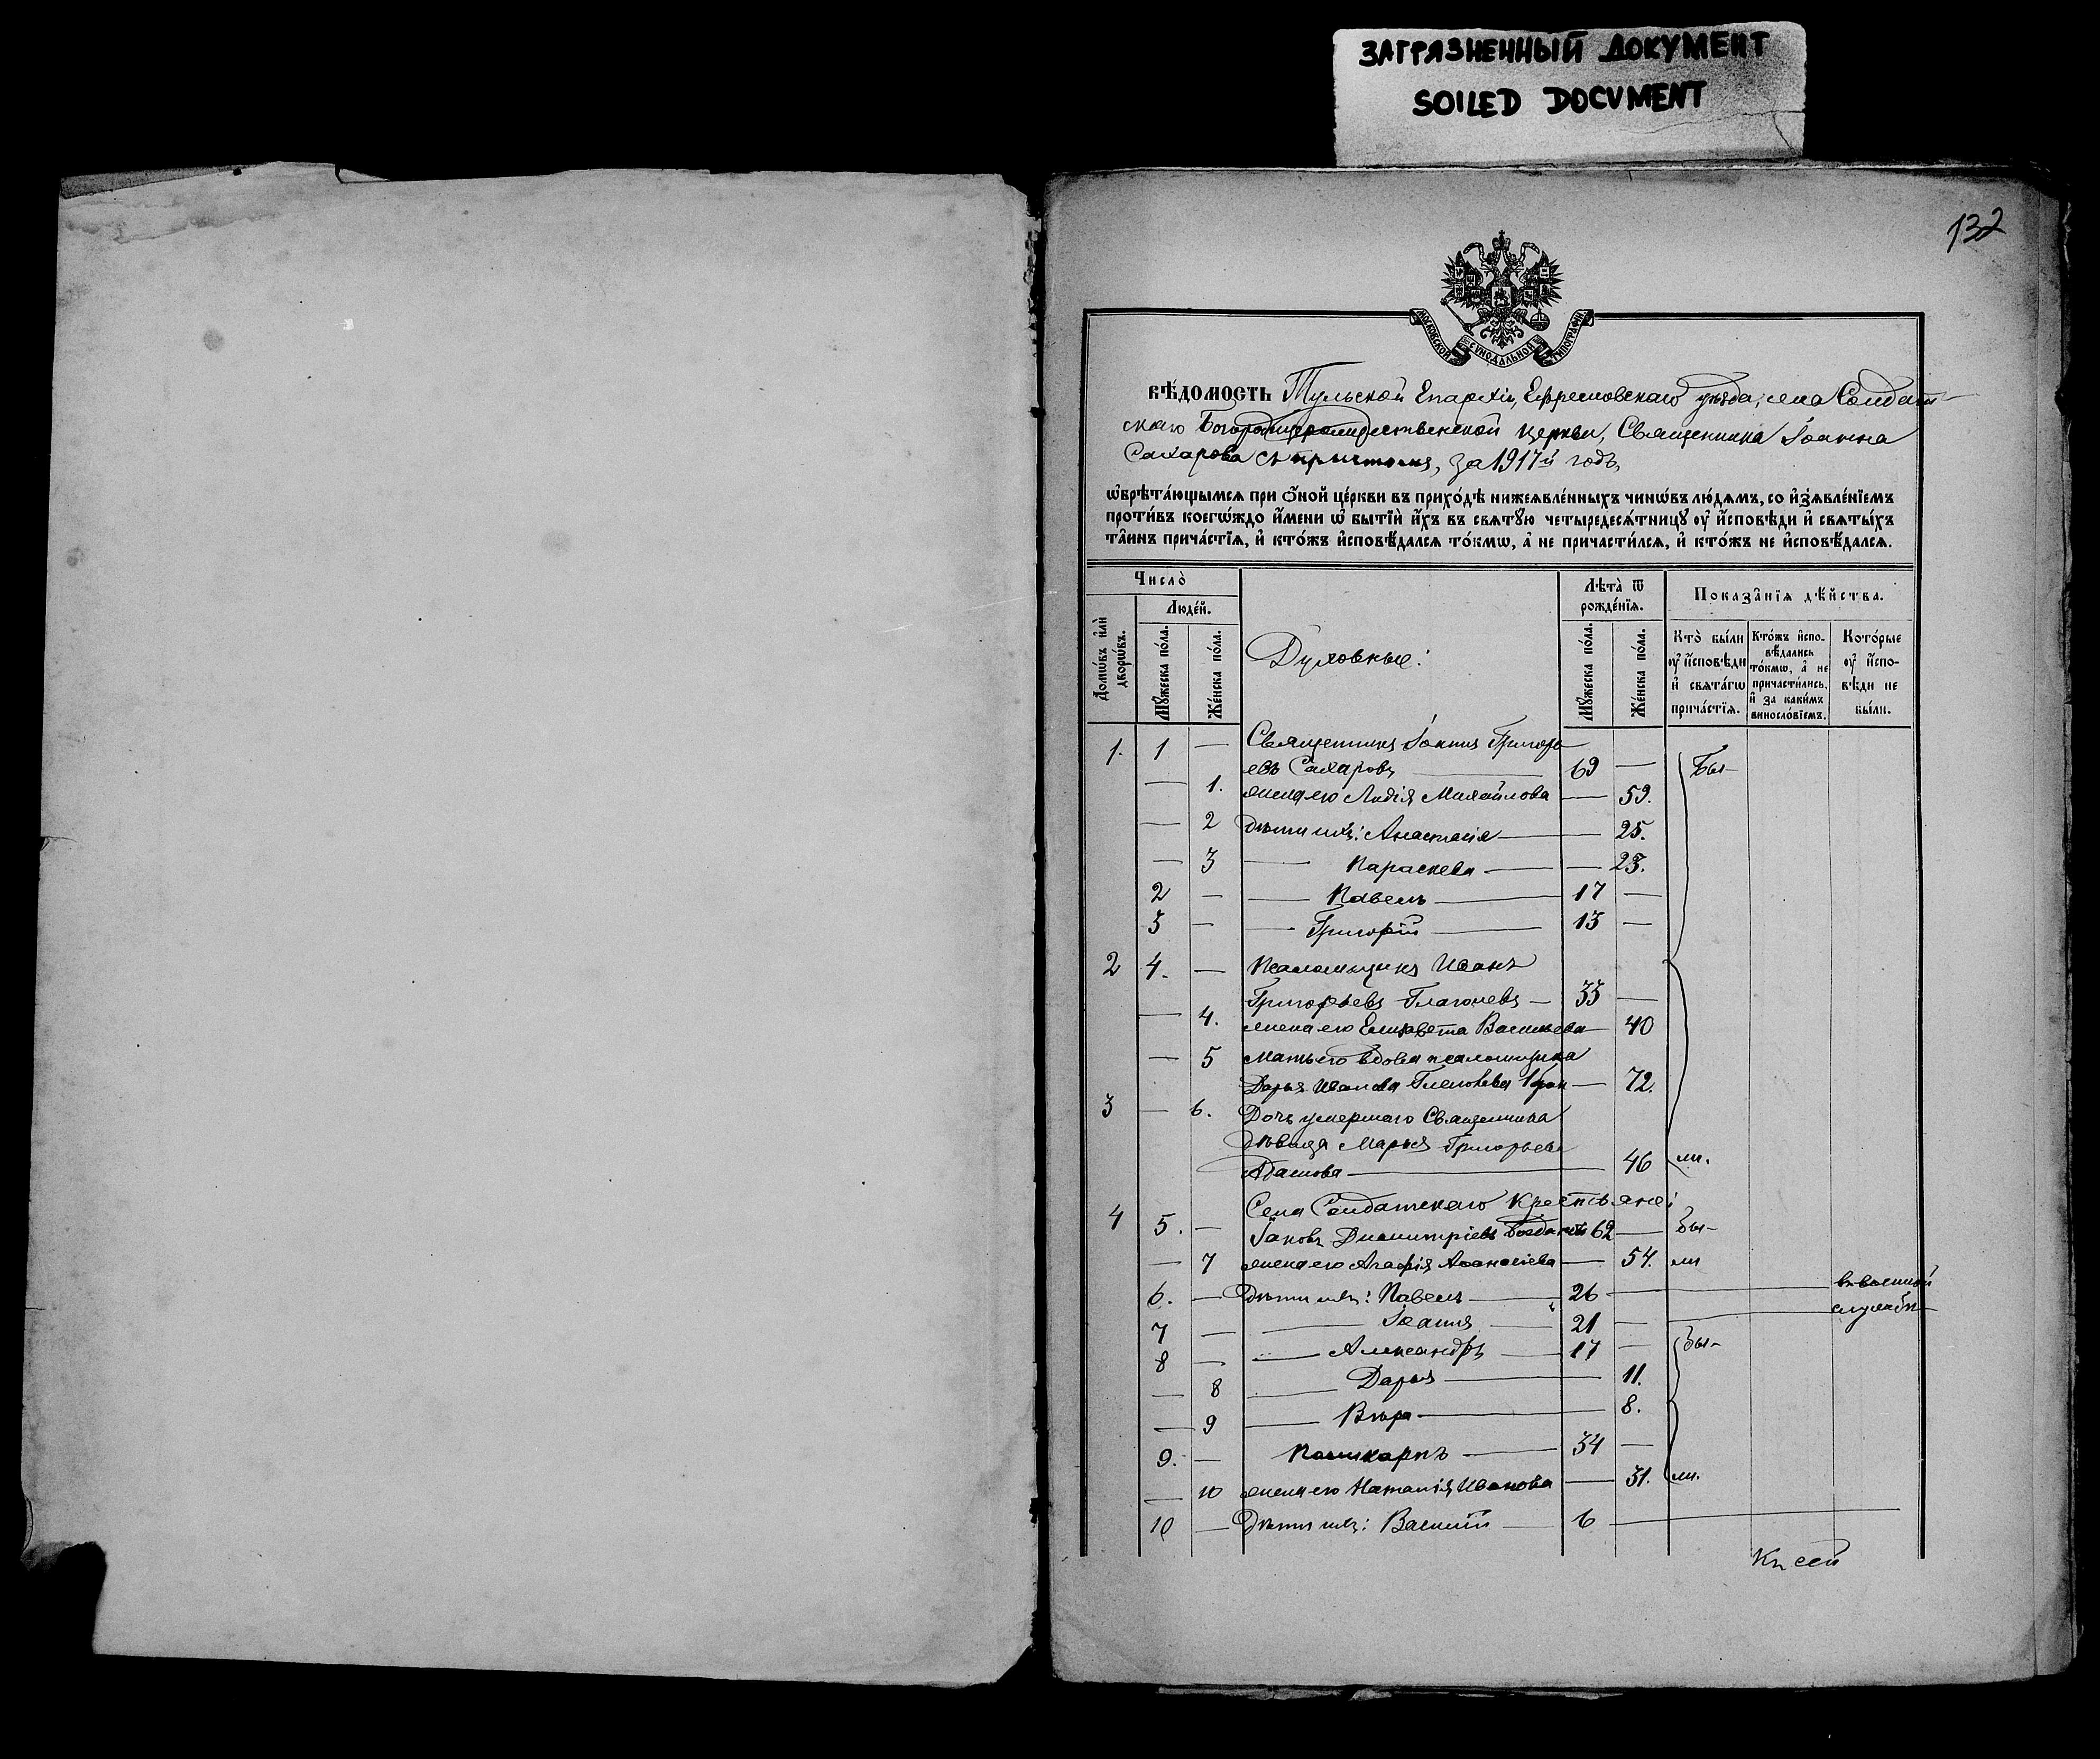 ЗАГРЯЗНЕННЫЙ ДОКУМЕНТ
SOILED DOCUMENT
132
МОСКОВСКОЙ СѴНОДАЛЬНОЙ ТИПОГРАФІИ
ВѢ́ДОМОСТЬ Тульской Епархіи, Ефремовскаго уѣзда, села Солдат-
скаго Богородицерождественской церкви, Священника Іоанна
Сахарова съ причтомъ, за 1917й годъ,
ѡ҆брѣта́ющымся при ѻ҆́ной це́ркви въ прихо́дѣ нижеѧвле́нныхъ чинѡ́въ лю́дѧмъ, со и҆з̾ѧвле́нїемъ
проти́въ коегѡ́ждо и҆́мени ѡ҆ бытїѝ и҆́хъ въ свѧтꙋ́ю четыредесѧ́тницꙋ ᲂу҆ и҆́сповѣди и҆ свѧты́хъ
та̑инъ прича́стїѧ, и҆ кто́жъ и҆сповѣ́далсѧ то́кмѡ, а҆ не причасти́лсѧ, и҆ кто́жъ не и҆сповѣ́далсѧ.
Число̀
Домѡ́въ и҆лѝ дворѡ́въ.
Люде́й.
Мꙋ́жеска по́ла.
Же́нска по́ла.
Духовные:
Лѣта̀ ѿ рожде́нїѧ.
Мꙋ́жеска по́ла.
Же́нска по́ла.
Показа̑нїѧ дѣ́йства.
Кто̀ бы́ли ᲂу҆ и҆́сповѣди и҆ свѧта́гѡ прича́стїѧ.
Кто́жъ и҆спо-вѣ́дались то́кмѡ, а҆ не причасти́лись, и҆ за каки́мъ виносло́вїемъ.
Кото́рые ᲂу҆ и҆́спо-вѣди не бы́ли.
1. 1 — Священникъ Іоаннъ Григорь-
евъ Сахаровъ — 69 — Бы-
— 1. жена его Лидія Михайлова — 59.
— 2 дѣти ихъ: Анастасія — 25.
— 3 — Параскева — 23.
2 — — Павелъ — 17 —
3 — — Григорій — 13 —
2 4. — Псаломщикъ Иванъ
Григорьевъ Глаголевъ — 33 —
— 4. жена его Елизавета Васильева — 40
— 5 мать его вдова псаломщика
Дарья Иванова Глаголева — 72.
3 — 6. Дочь умершаго Священника
дѣвица Марья Григорьева
— 46 ли.
Села Солдатскаго Крестьяне:
4 5. — Іаковъ Димитріевъ 62 — Бы-
— 7 жена его Агафія Афанасіева — 54. ли
6. — Дѣти ихъ: Павелъ — 26 — въ военной
7 — — Іоаннъ — 21 — службѣ
8 — — Александръ — 17 — Бы-
— 8 — Дарья — 11.
— 9 — Вѣра — 8.
9. — Поликарпъ — 34 —
— 10 жена его Наталія Иванова — 31. ли.
10 — Дѣти ихъ: Василій — 6 —
Къ сей